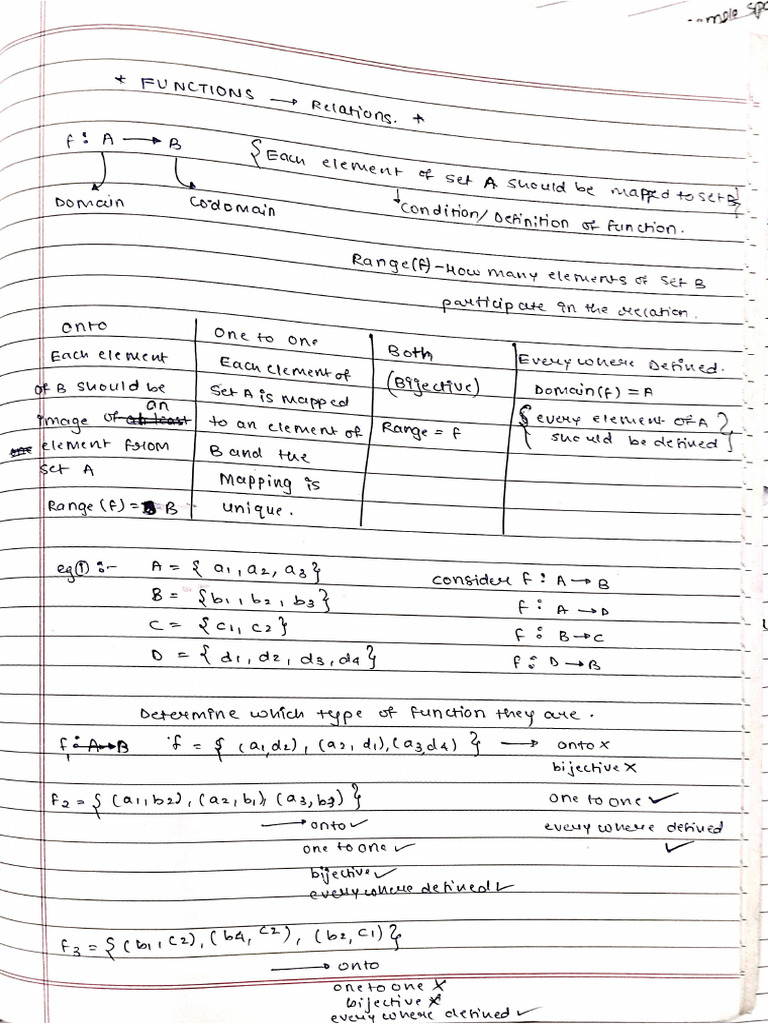 * FUNCTIONS → Relations. *
f: A → B {Each element of set A should be mapped to set B}
Domain Codomain Condition/Definition of function.
Range(f) - How many elements of set B
participate in the relation.
onto
Each element
of B should be
an
image of at least
one element from
set A
Range (f) = B
One to one
Each element of
set A is mapped
to an element of
B and the
Mapping is
unique.
Both
(Bijective)
Range = f
Everywhere Defined.
Domain(f) = A
{every element of A
should be defined}
eg① :- A = { a1, a2, a3} consider f: A → B
B = {b1, b2, b3} f: A → D
C = {c1, c2} f: B → C
D = {d1, d2, d3, d4} f: D → B
Determine which type of function they are.
f: A → B f = { (a1,d2), (a2, d1), (a3,d4) } → onto x
bijective x
f2 = { (a1,b2), (a2,b1), (a3,b3) } one to one ✓
→ onto ✓ every where defined
one to one ✓ ✓
bijective ✓
everywhere defined ✓
f3 = {(b1, c2), (b4, c2), (b2, c1)}
→ onto
one to one x
bijective x
every where defined ✓